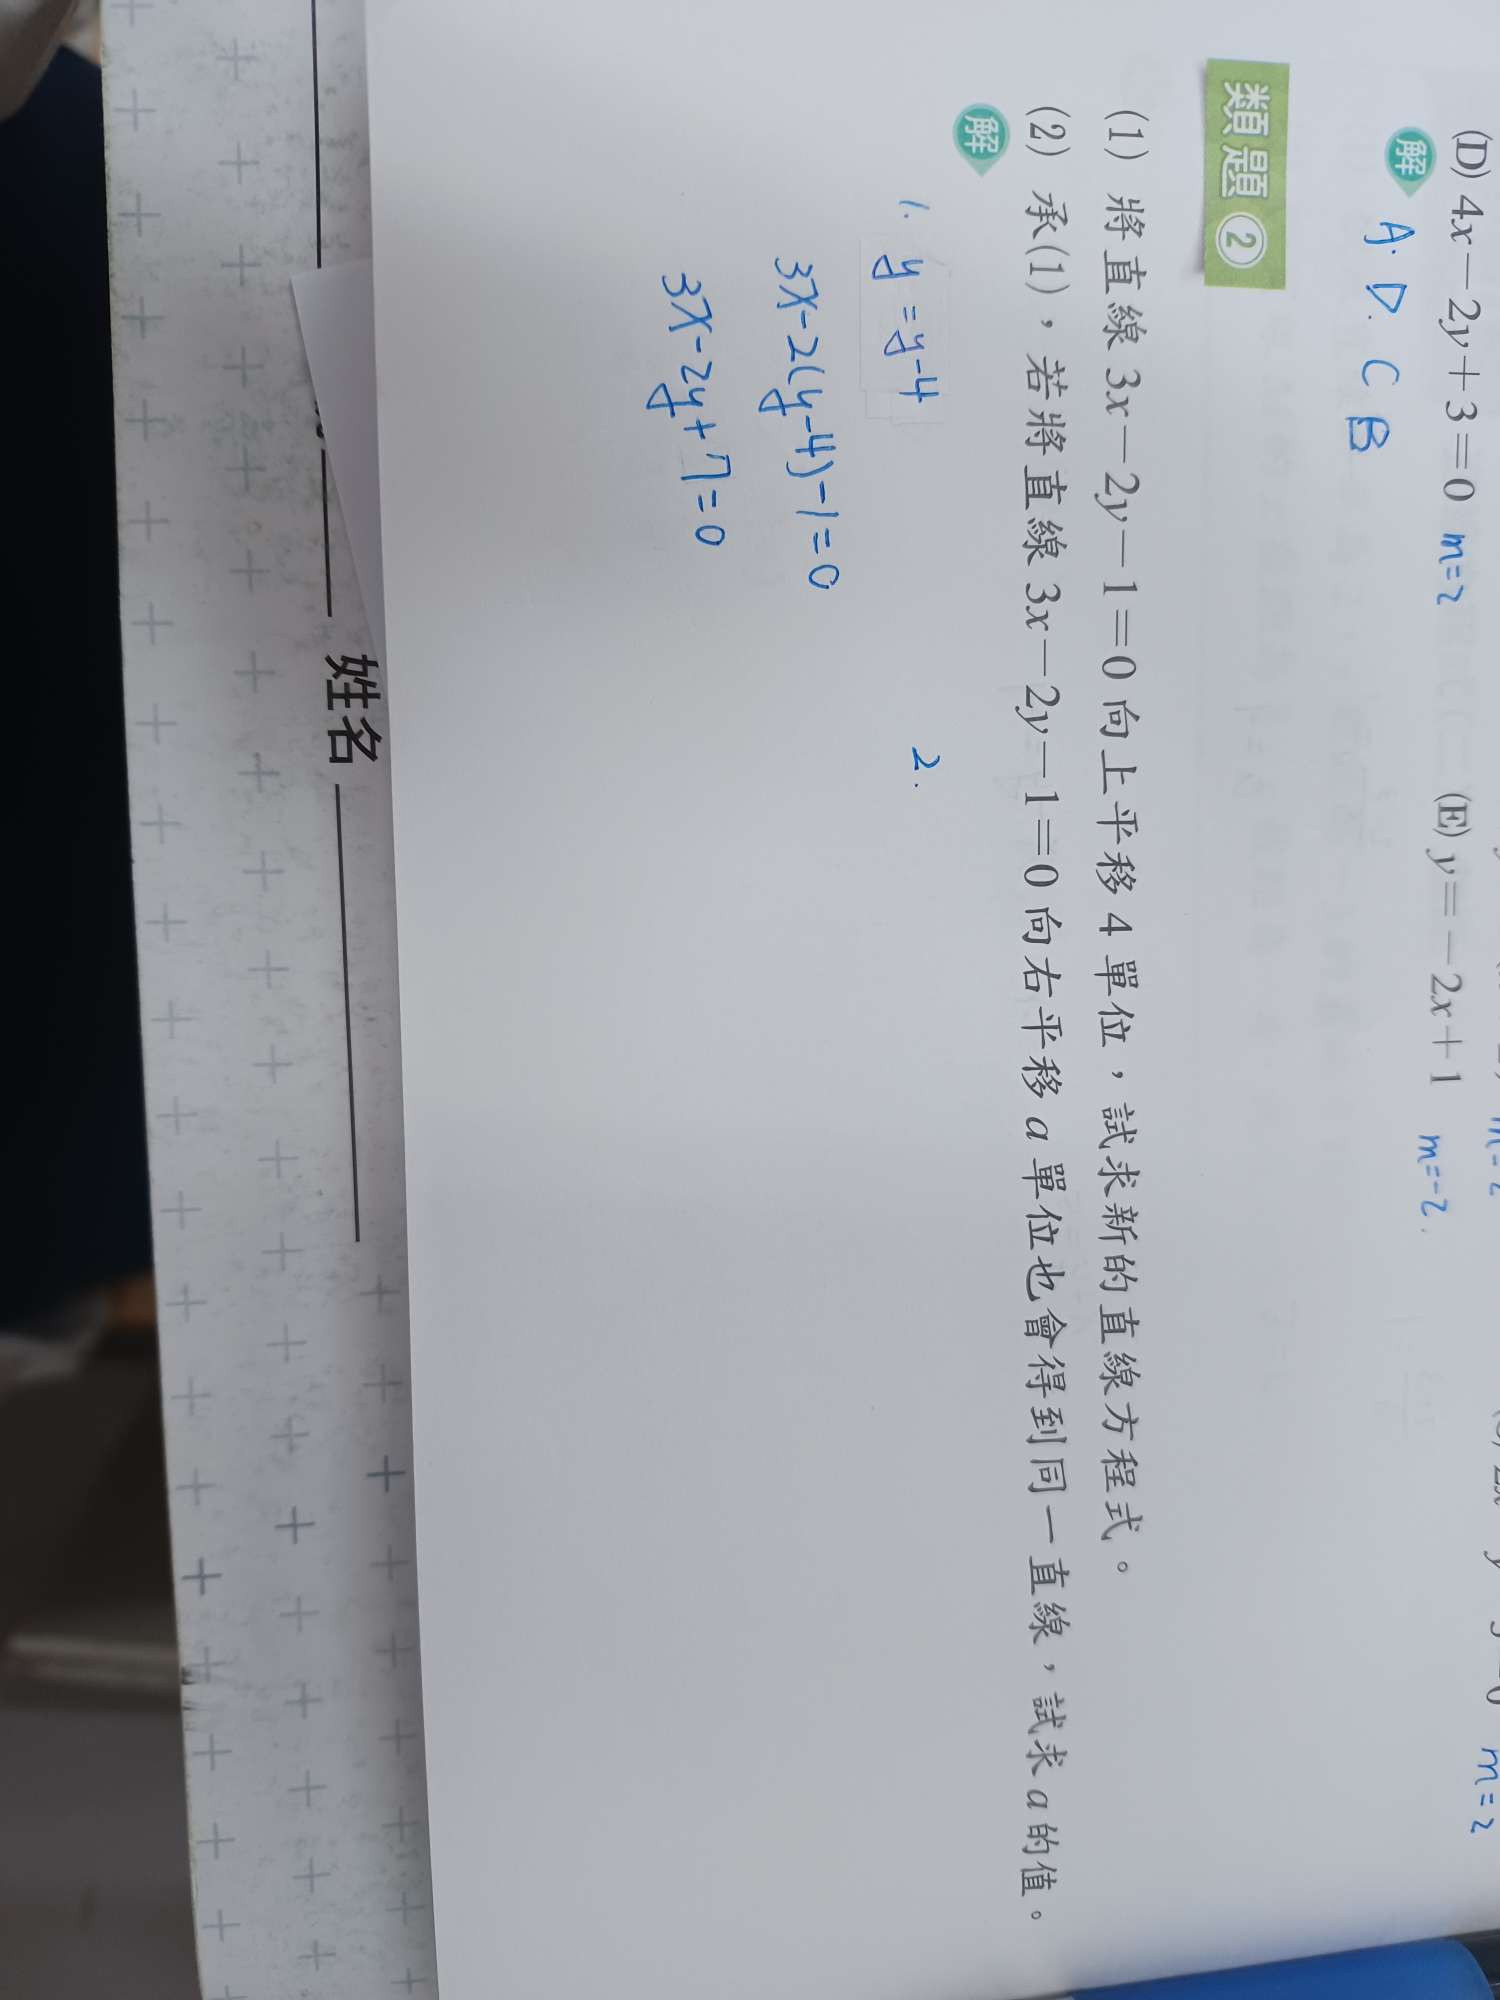 (D) 4x－2y＋3＝0 m=2 (E) y＝－2x＋1 m=-2.
m=2
解 A. D. C B
類題 2
(1) 將直線 3x－2y－1＝0 向上平移 4 單位，試求新的直線方程式。
(2) 承(1)，若將直線 3x－2y－1＝0 向右平移 a 單位也會得到同一直線，試求 a 的值。
解
1. y = y-4
3x-2(y-4)-1=0
3x-2y+7=0
2.
姓名